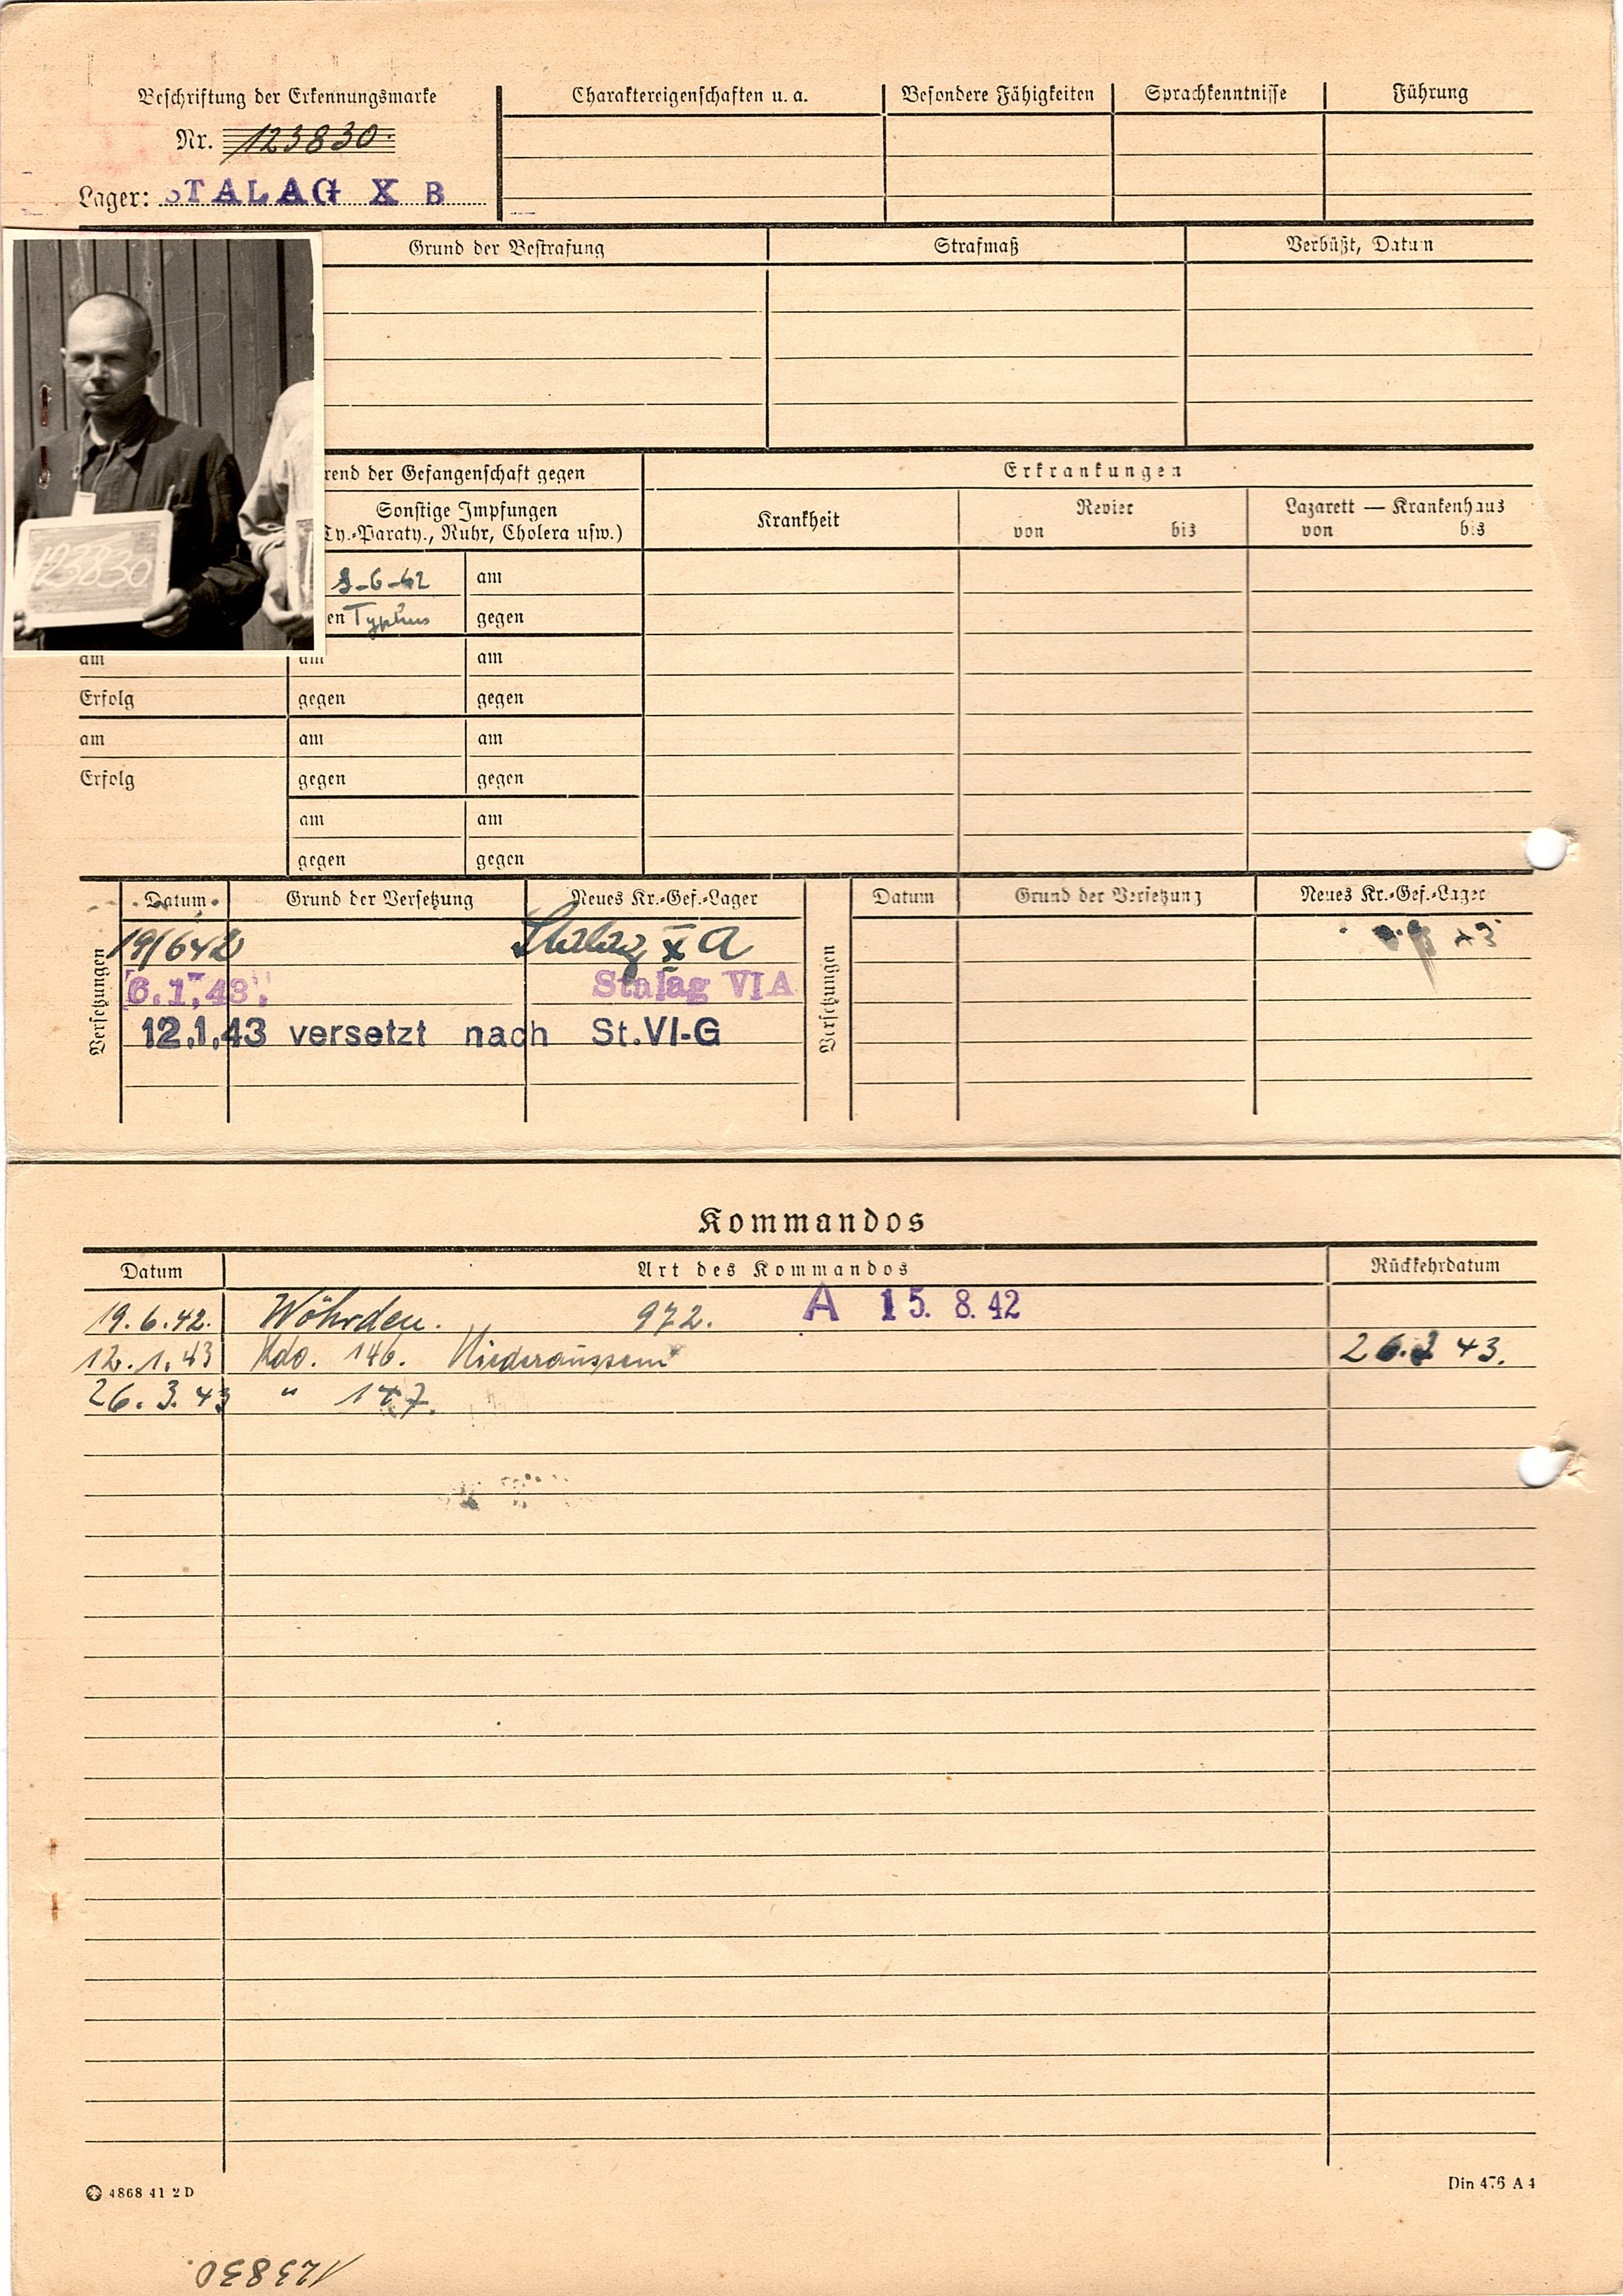 Beschriftung der Erkennungsmarke
Nr. 123830.
Lager: STALAG X B
Charaktereigenschaften u. a.
Besondere Fähigkeiten
Sprachkenntnisse
Führung
Grund der Bestrafung
Strafmaß
Verbüßt, Datum
123830
rend der Gefangenschaft gegen
Sonstige Impfungen
Ty.-Paraty., Ruhr, Cholera usw.)
-6-42 am
en Typhus gegen
am am am
Erfolg gegen gegen
am am am
Erfolg gegen gegen
am am
gegen gegen
Erkrankungen
Krankheit
Revier
von bis
Lazarett — Krankenhaus
von bis
Versetzungen
Datum Grund der Versetzung Neues Kr.-Gef.-Lager
19/6 42 Stalag X A
6.1.43. Stalag VI A
12.1.43 versetzt nach St.VI-G
Versetzungen
Datum Grund der Versetzung Neues Kr.-Gef.-Lager
43
Kommandos
Datum Art des Kommandos Rückkehrdatum
19.6.42. Wöhrden. 972. A 15. 8. 42
12.1.43 Kdo. 146. Niederaussem 26.3 43.
26.3.43 " 147.
4868 41 2 D
Din 476 A 4
123830.